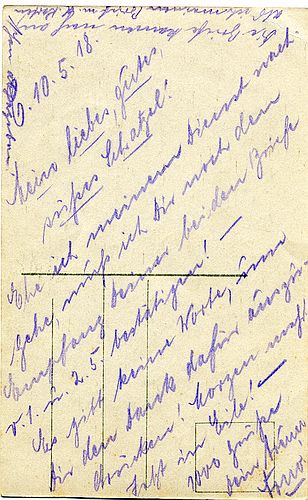 10.5.18.
Mein liebes, gutes,
süßes Schatzel!
Ehe ich meinem Dienst nach-
gehe, muß ich Dir noch den
Empfang Deiner beiden Briefe
v. 1. u. 2.5 bestätigen! —
Es gibt keine Worte, um
Dir den Dank dafür auszu-
drücken! Morgen mehr
Jetzt in Eile! —
1000 Grüße
Dein